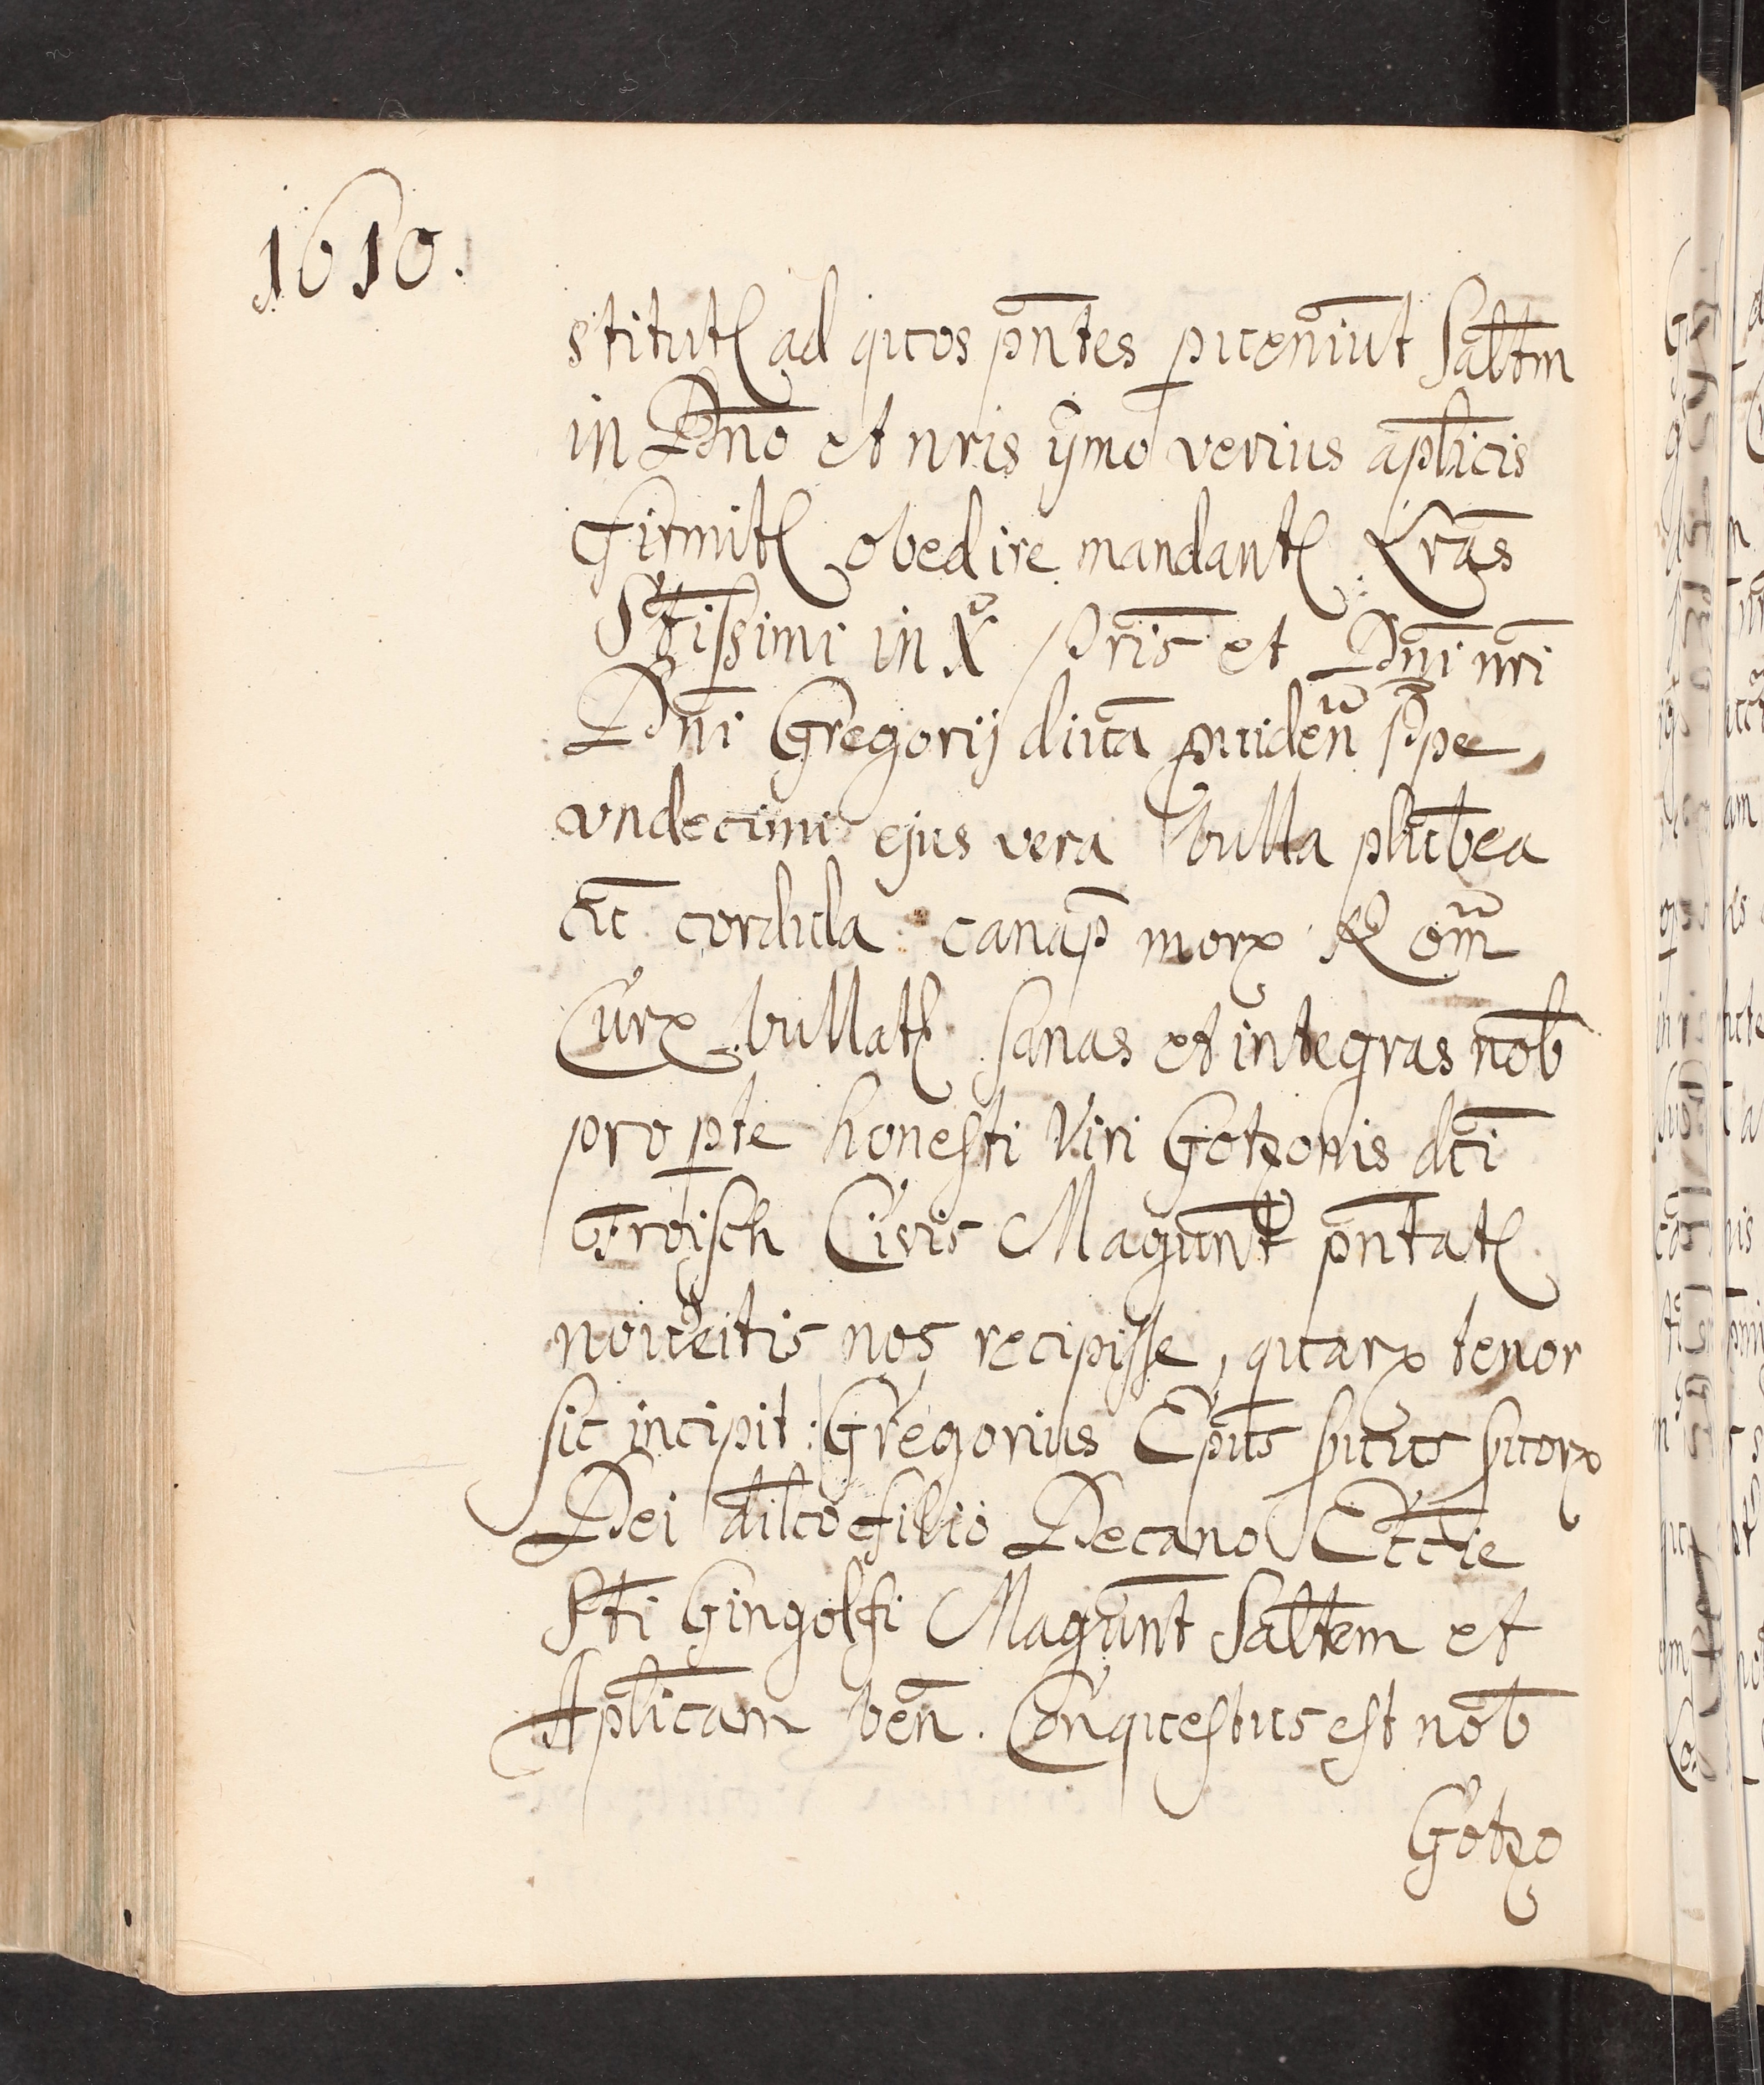 1610.
stitut ad quos pn̄tes p̱ueniūt Saltm̄
in Dn̄o et nr̄is ȳmo verius ap̄licis
firmit obedire mandant Lr̄as
Sc̄tissimi in Xº Pr̄is et Dn̄i nr̄i
Dn̄i Gregorij diuā ꝓuiden̄ Ppe,
vndecimi ejus vera bulla plūbea
cū cordula canap̄ morꝝ Rom̄
Curꝝ bullat sanas et integras nob̄
pro p̱te honesti Viri Gotzonis dc̄i
Froisch Civis Magunt̄ pn̄tat
noūeitis nos recipisse, quarꝝ tenor
sic incipit: Gregorius Ep̄us suus suorꝝ
Dei dilc̄o filio Decano Ecc̄lie
Sc̄ti Gingolfi Magunt̄ Saltem et
Ap̄licam ben̄. Conquestus est nob̄
Gotzo